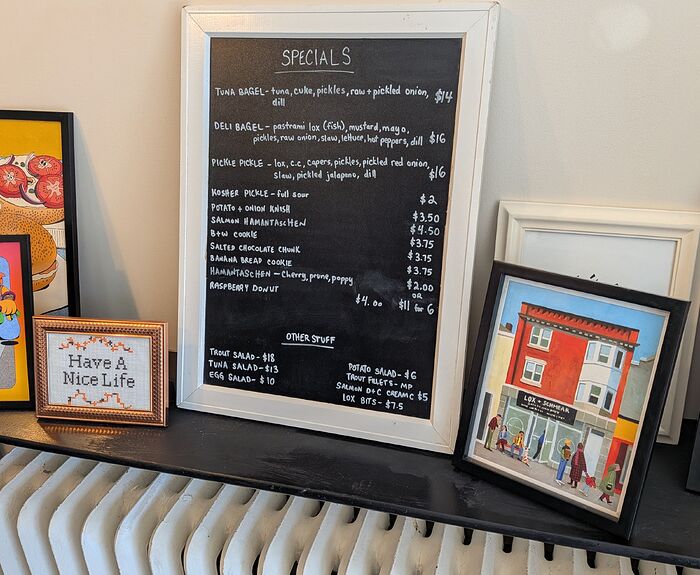 SPECIALS
TUNA BAGEL- tuna, cuke, pickles, raw + pickled onion, $14
dill
DELI BAGEL - pastrami lox (fish), mustard, mayo,
pickles, raw onion, slaw, lettuce, hot peppers, dill $16
PICKLE PICKLE - lox, c.c, capers, pickles, pickled red onion,
slaw, pickled jalapeno, dill $16
KOSHER PICKLE - full sour $2
POTATO + ONION KNISH $3.50
SALMON HAMANTASCHEN $4.50
B+W COOKIE $3.75
SALTED CHOCOLATE CHUNK $3.75
BANANA BREAD COOKIE $3.75
HAMANTASCHEN - Cherry, prune, poppy $2.00
OR
RASPBERRY DONUT $4.00 $11 for 6
OTHER STUFF
TROUT SALAD - $18
TUNA SALAD - $13
EGG SALAD - $10
POTATO SALAD - $6
TROUT FILETS - MP
SALMON D+C CREAM C $5
LOX BITS - $7.5
Have A
Nice Life
LOX + SCHMEAR